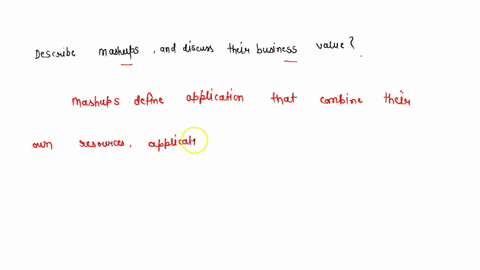 Describe mashups, and discuss their business value?.
Mashups define application that combine their
own resources. applicat